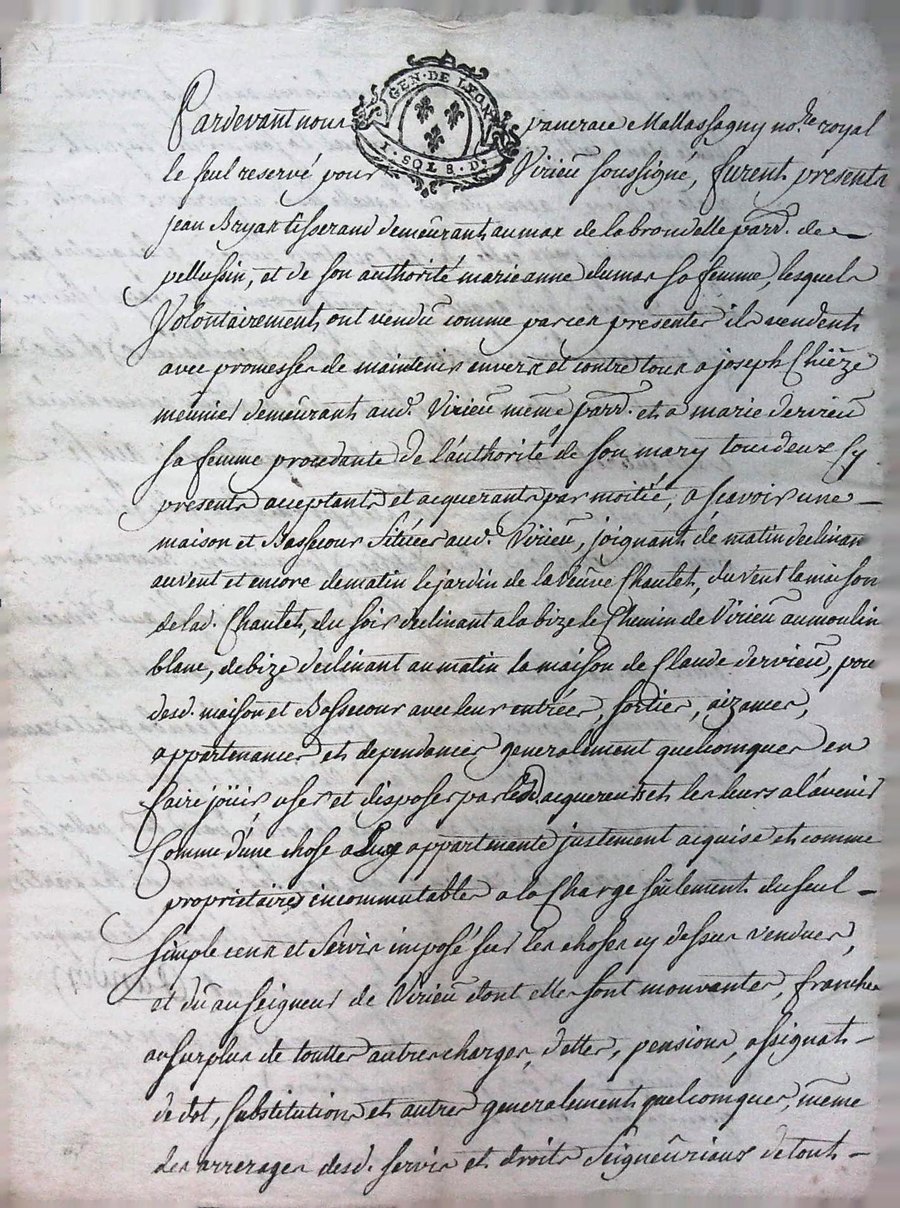 GEN·DE LYON
I·SOL 8·D·
Pardevant nous pancrace Mallassagny no.re royal
le seul reservé pour Virieu soussigné, furent presents
jean Bryas tisserand demeurant au mas de la brondelle parr. de
pellussin, et de son authorité marie anne dumas sa femme, lesquels
Volontairement ont vendu comme par ces presentes ils vendent
avec promesse de maintenir envers et contre tous a joseph Chièze
meunier demeurant aud. Virieu même parr. et a marie dervieu
sa femme procedante de l'authorité de son mary tous deux cy
presents acceptants et acquerants par moitié, a scavoir une
maison et Bassecour Situées aud. Virieu, joignants de matin declinant
au vent et encore de matin le jardin de la veuve Chaulet, du vent la maison
de lad. Chaulet, du soir declinant a la bize le Chemin de Virieu au moulin
blanc, de bize declinant au matin la maison de Claude dervieu, pour
desd. maison et Bassecour avec leurs entrées, sorties, aizances,
appartenances et dependances generalement quelcomques en
faire joüir user et disposer par lesd. acquereurs et les leurs a l'avenir
Comme d'une chose a Eux appartenante justement acquise et comme
proprietaires incommutables a la Charge seulement du seul
simple cens et servis imposé sur les choses cy dessus vendues,
et dû au seigneur de Virieu dont elles sont mouvantes, franches
au surplus de touttes autres charges, dettes, pensions, assignats
de dot, substitutions et autres generalement quelcomques, même
des arrerages desd. servis et droits Seigneuriaux de tout